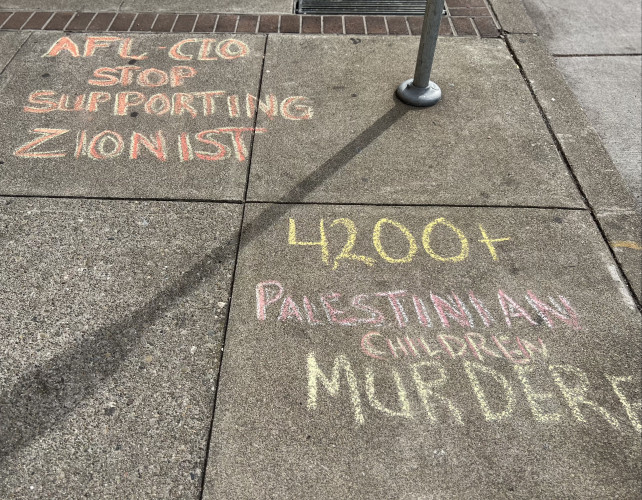 AFL-CIO
STOP
SUPPORTING
ZIONIST
4200+
PALESTINIAN
CHILDREN
MURDERE